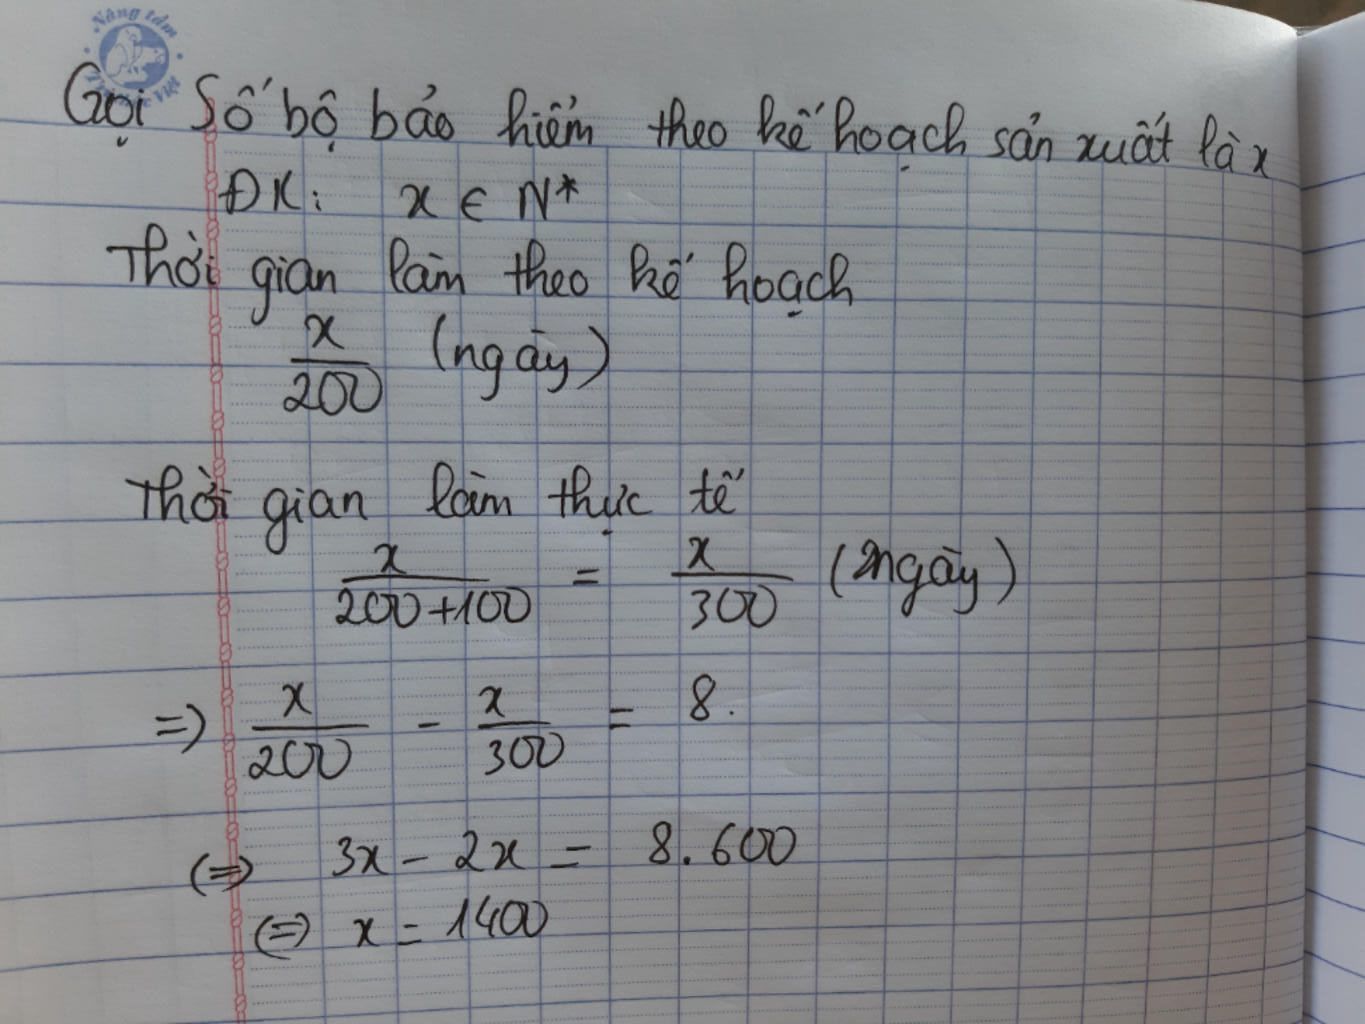 Nâng tầm
Việt
Gọi Số bộ bảo hiểm theo kế hoạch sản xuất là x
ĐK: x ∈ N*
Thời gian làm theo kế hoạch
x/200 (ngày)
Thời gian làm thực tế
x/200+100 = x/300 (ngày)
=> x/200 - x/300 = 8.
<=> 3x - 2x = 8.600
<=> x = 1400